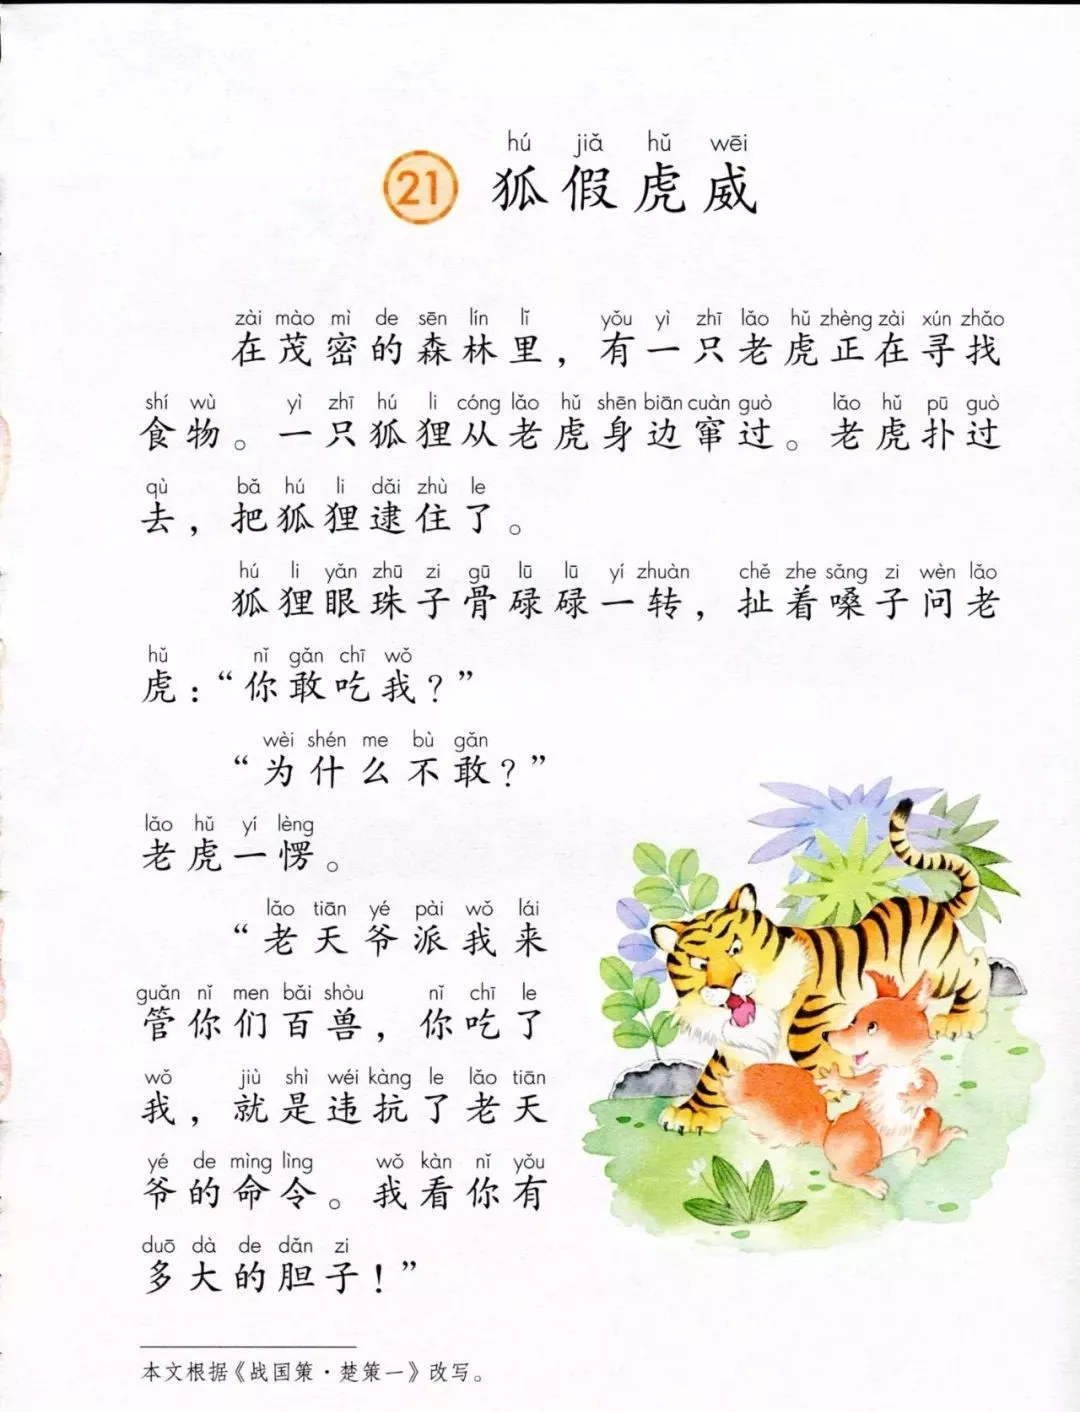 hú jiǎ hǔ wēi
21 狐假虎威
zài mào mì de sēn lín lǐ yǒu yì zhī lǎo hǔ zhèng zài xún zhǎo
在茂密的森林里，有一只老虎正在寻找
shí wù yì zhī hú li cóng lǎo hǔ shēn biān cuàn guò lǎo hǔ pū guò
食物。一只狐狸从老虎身边窜过。老虎扑过
qù bǎ hú li dǎi zhù le
去，把狐狸逮住了。
hú li yǎn zhū zi gū lū lū yí zhuàn chě zhe sǎng zi wèn lǎo
狐狸眼珠子骨碌碌一转，扯着嗓子问老
hǔ nǐ gǎn chī wǒ
虎：“你敢吃我？”
wèi shén me bù gǎn
“为什么不敢？”
lǎo hǔ yí lèng
老虎一愣。
lǎo tiān yé pài wǒ lái
“老天爷派我来
guǎn nǐ men bǎi shòu nǐ chī le
管你们百兽，你吃了
wǒ jiù shì wéi kàng le lǎo tiān
我，就是违抗了老天
yé de mìng lìng wǒ kàn nǐ yǒu
爷的命令。我看你有
duō dà de dǎn zi
多大的胆子！”
本文根据《战国策·楚策一》改写。